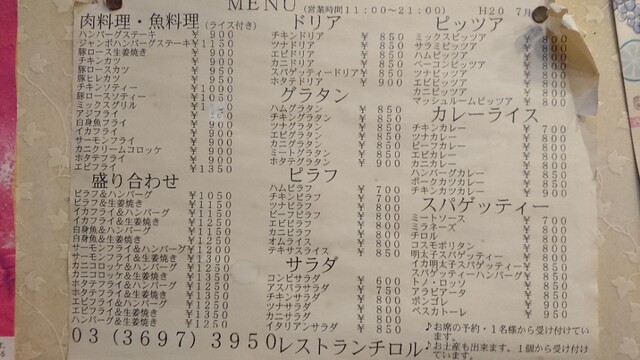 MENU (営業時間11:00~21:00) H20 7月
肉料理・魚料理 (ライス付き)
ハンバーグステーキ ¥900
ジャンボハンバーグステーキ ¥1150
豚ロース生姜焼き ¥900
チキンカツ ¥900
豚ロースカツ ¥950
豚ヒレカツ ¥950
チキンソティー ¥1000
豚ロースソティー ¥1050
ミックスグリル
アジフライ
白身魚フライ ¥900
イカフライ ¥900
サーモンフライ ¥900
カニクリームコロッケ ¥900
ホタテフライ ¥900
エビフライ ¥1350
盛り合わせ
ピラフ&ハンバーグ ¥1050
ピラフ&生姜焼き ¥1050
イカフライ&ハンバーグ ¥1150
イカフライ&生姜焼き ¥1200
白身魚&ハンバーグ
白身魚&生姜焼き ¥1250
サーモンフライ&ハンバーグ ¥1200
サーモンフライ&生姜焼き ¥1300
カニコロッケ&ハンバーグ ¥1250
カニコロッケ&生姜焼き
ホタテフライ&ハンバーグ
ホタテフライ&生姜焼き ¥1350
エビフライ&ハンバーグ
エビフライ&生姜焼き ¥1350
ハンバーグ&生姜焼き ¥1250
03(3697)3950 レストランチロル
ドリア
チキンドリア ¥850
ツナドリア ¥850
エビドリア ¥850
カニドリア ¥850
スパゲッティードリア ¥850
ホタテドリア ¥900
グラタン
ハムグラタン ¥850
チキングラタン ¥850
ツナグラタン ¥850
エビグラタン ¥850
カニグラタン ¥850
ミートグラタン ¥850
ホタテグラタン ¥900
ピラフ
ハムピラフ ¥700
チキンピラフ ¥700
ツナピラフ ¥800
ビーフピラフ ¥800
エビピラフ ¥800
カニピラフ ¥800
オムライス ¥800
テキサスライス ¥850
サラダ
コンビサラダ ¥600
アスパラサラダ ¥750
チキンサラダ ¥800
ツナサラダ ¥800
カニサラダ ¥850
イタリアンサラダ ¥850
ピッツア
ミックスピッツア ¥800
サラミピッツア ¥800
ハムピッツア ¥800
ベーコンピッツア ¥800
ツナピッツア ¥800
エビピッツア ¥800
カニピッツア ¥800
マッシュルームピッツア ¥800
カレーライス
チキンカレー ¥700
ツナカレー ¥800
ビーフカレー ¥800
エビカレー ¥800
カニカレー ¥800
ハンバーグカレー ¥850
ポークカツカレー ¥850
チキンカツカレー ¥900
スパゲッティー
ミートソース ¥700
ミラネーズ ¥800
チロル ¥800
コスモポリタン ¥800
明太子スパゲッティー ¥800
イカ明太子スパゲッティー ¥850
スパゲッティーハンバーグ ¥850
トノ・ロッソ ¥850
アラビアータ ¥850
ボンゴレ ¥900
ペスカトーレ ¥950
♪お席の予約・1名様から受け付けています。
♪お土産も出来ます。1個から受け付けています。